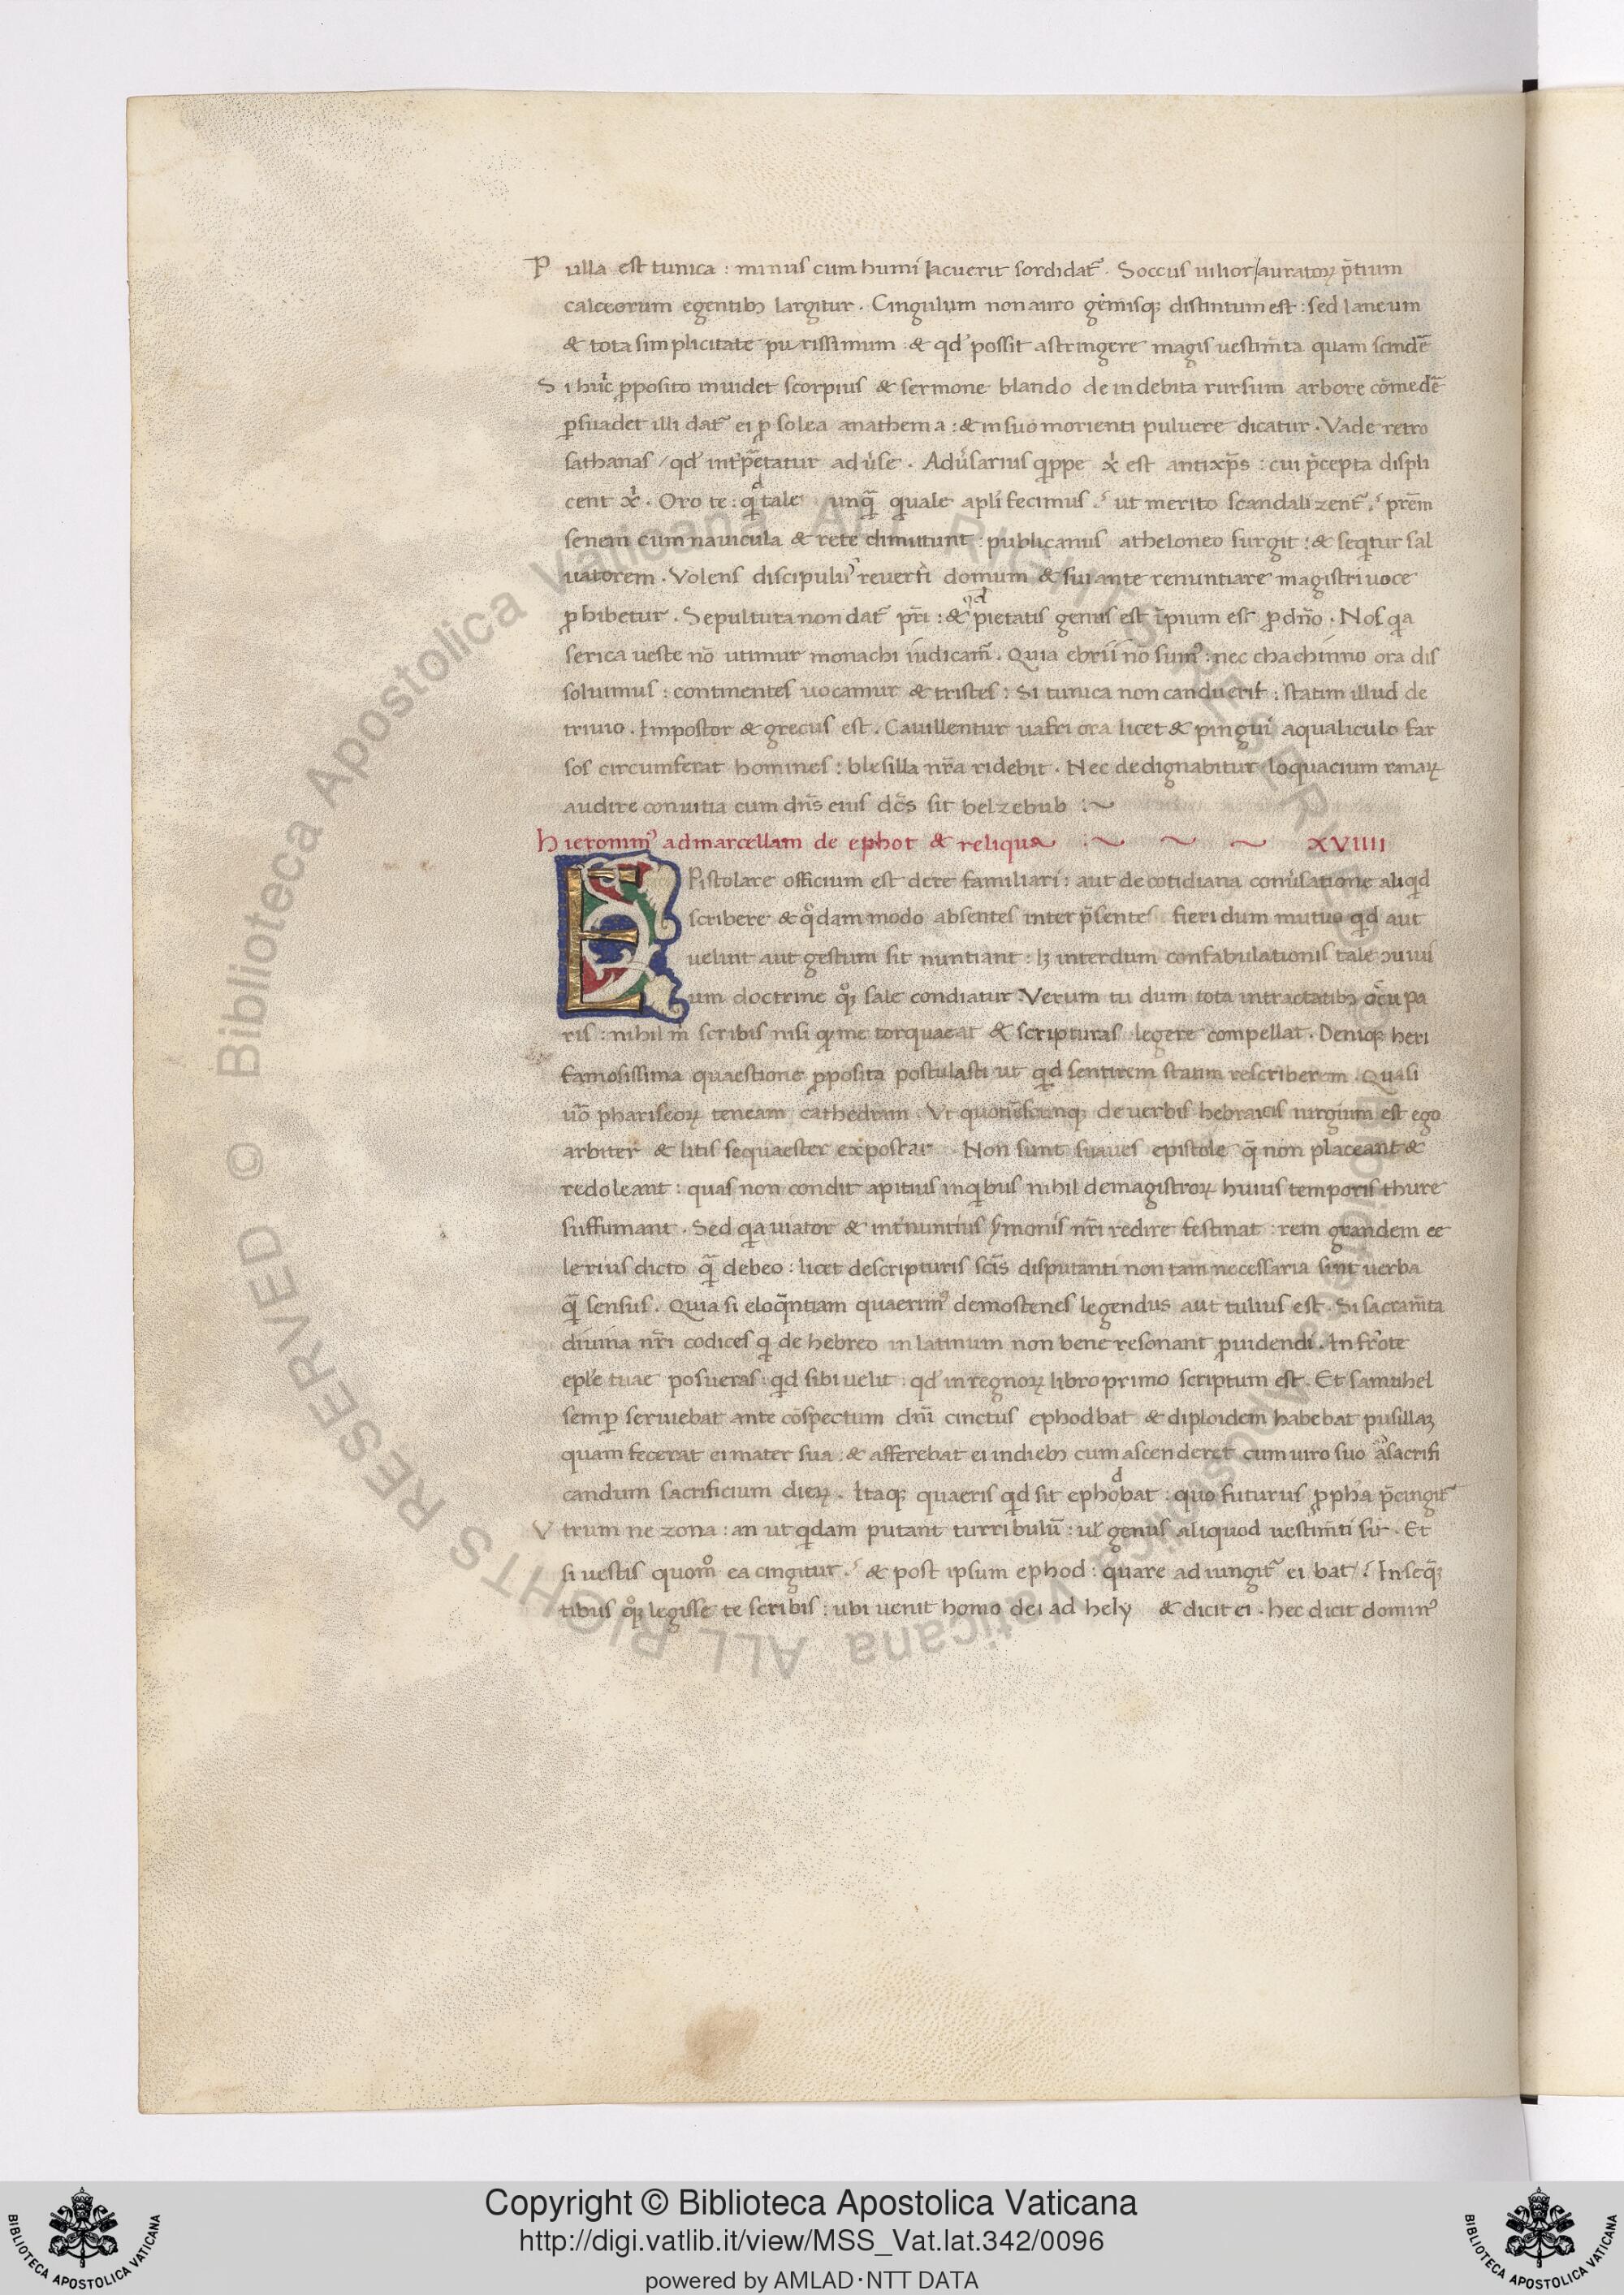 Pulla est tunica : minus cum humi Iacuerit sordidat᷑ . Soccus uilior / auratoꝝ p̄tium
calceorum egentibꝫ largitur . Cingulum non auro gemisqꝫ distintum est : sed laneum
& tota simplicitate purissimum : & qd᾽ possit astringere magis uestim̄ta quam scindē
Si huic ꝓposito inuidet scorpius & sermone blando de indebita rursum arbore cōmedē
ꝑsuadet illi dat᷑ ei ꝓ solea anathema : & in suo morienti puluere dicatur . Vade retro
sathanas / qd᾽ int̉p̄tatur adúse . Adúsarius qͥppe xͥ est antixp̄s : cui p̄cepta displi
cent xͥ . Oro te : qͥd tale unqͣ̄ qͥuale apl̓i fecimus . ut merito scandalizent᷑ . pr̄em
senem cum nauicula & rete dimittunt : publicanus atheloneo surgit : & seqͥtur sal
uatorem . Volens discipulus reuerti domum & sui ante renuntiare magistri uoce
ꝓhibetur . Sepultura non dat᷑ pr̄i : & qd pietatis genus est īpium eē ꝓ dn̄o . Nos qͥa
serica ueste nō utimur monachi iudicam̄ . Quia ebrii nō sumꝰ : nec chachinno ora dis
soluimus : continentes uocamur & tristes : Si tunica non canduerit : statim illud de
triuio . Impostor & grecus est . Cauillentur uafri ora licet & pingui aqualiculo far
sos circumferat homines : blesilla nr̄a ridebit . Nec dedignabitur loquacium ranaꝝ
audire conuitia cum dn̄s eius dc̄s sit belzebub :~
hieronimꝰ ad marcellam de ephot & reliqua :~ ~ ~ XVIIII
EPistolare officium est de re familiari : aut de cotidiana conúsatione aliqͥd
scribere & qͦdam modo absentes inter p̄sentes fieri dum mutuo qͥd aut
uelint aut gestum sit nuntiant : lꝫ interdum confabulationis tale ɔuiui
um doctrine qͦqꝫ sale condiatur . Verum tu dum tota in tractatibꝫ occupa
ris : nihil m̄ scribis nisi qͥ me torqueat & scripturas legere compellat . Deniqꝫ heri
famosissima quaestione ꝓposita postulasti ut qͥd sentirem statim rescriberem . Quasi
uō phariseoꝝ teneam cathedram . Ut quotiēscunqꝫ de uerbis hebraicis iurgium est ego
arbiter & litis sequaester expostar . Non sunt suaues epistole q̄ non placeant &
redoleant : quas non condit apitius in qͥbus nihil de magistroꝝ huius temporis thure
suffumant . Sed qͥa uiator & int̉nuntius s̉monis nr̄i redire festinat : rem grandem ce
lerius dicto qͣ̄ debeo : licet de scripturis scīs disputanti non tam necessaria sint uerba
qͣ̄ sensus . Quia si eloq̄ntiam quaerimꝰ demostenes legendus aut tulius est . Si sacram̄ta
diuina nr̄i codices qͥ de hebreo in latinum non bene resonant ꝓuidendi . In frōte
epl̓e tuae posueras : qͥd sibi uelit : qd᾽ in regnoꝝ libro primo scriptum est . Et samuhel
semꝑ seruiebat ante cōspectum dn̄i cinctus ephodbat & diploidem habebat pusillaꝫ
quam fecerat ei mater sua : & afferebat ei in diebꝫ cum ascenderet cum uiro suo ad sacrifi
candum sacrificium dieꝝ . Itaqꝫ quaeris qͥd sit ephodbat : quo futurus ꝓpha p̄cingit᷑
Vtrum ne zona : an ut qͥdam putant turribulū : ul̓ genus aliquod uestim̄ti sit . Et
si uestis quomͦ ea cingitur . & post ipsum ephod : quare adiungit᷑ ei bat / . In seq̄
tibus qͦqꝫ legisse te scribis : ubi uenit homo dei ad hely & dicit ei . hec dicit dominꝰ
Copyright © Biblioteca Apostolica Vaticana
http://digi.vatlib.it/view/MSS_Vat.lat.342/0096
powered by AMLAD·NTT DATA
© Biblioteca Apostolica Vaticana ALL RIGHTS RESERVED
© Biblioteca Apostolica Vaticana ALL RIGHTS RESERVED
BIBLIOTECA APOSTOLICA VATICANA
BIBLIOTECA APOSTOLICA VATICANA